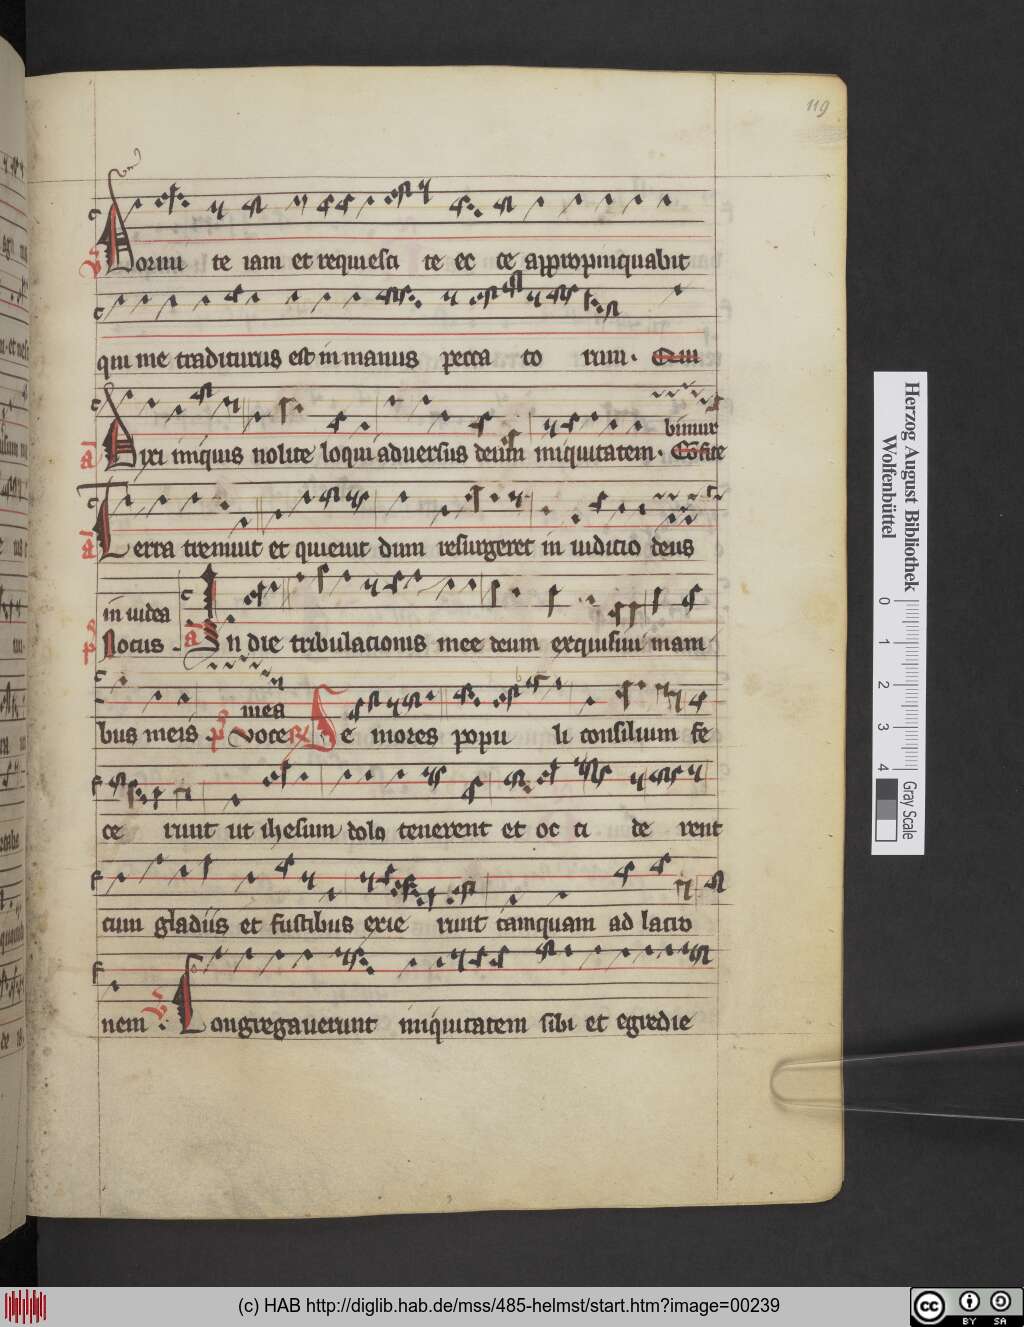 119
V Dormi te iam et requiesci te ec ce appropinquabit
qui me traditurus est in manus pecca to rum. Qui
bimur
a Dixi iniquis nolite loqui adversus deum iniquitatem. Confite
a Terra tremuit et quievit dum resurgeret in iudicio deus
in iudea
p Notus. a In die tribulacionis mee deum exquisiui mani
mea
bus meis. p Voce R Se niores popu li consilium fe
ce runt ut ihesum dolo tenerent et oc ci de rent
cum gladiis et fustibus exie runt tamquam ad latro
nem. V Congregauerunt iniquitatem sibi et egredie
Herzog August Bibliothek
Wolfenbüttel
0 1 2 3 4
Gray Scale
(c) HAB http://diglib.hab.de/mss/485-helmst/start.htm?image=00239
cc BY SA